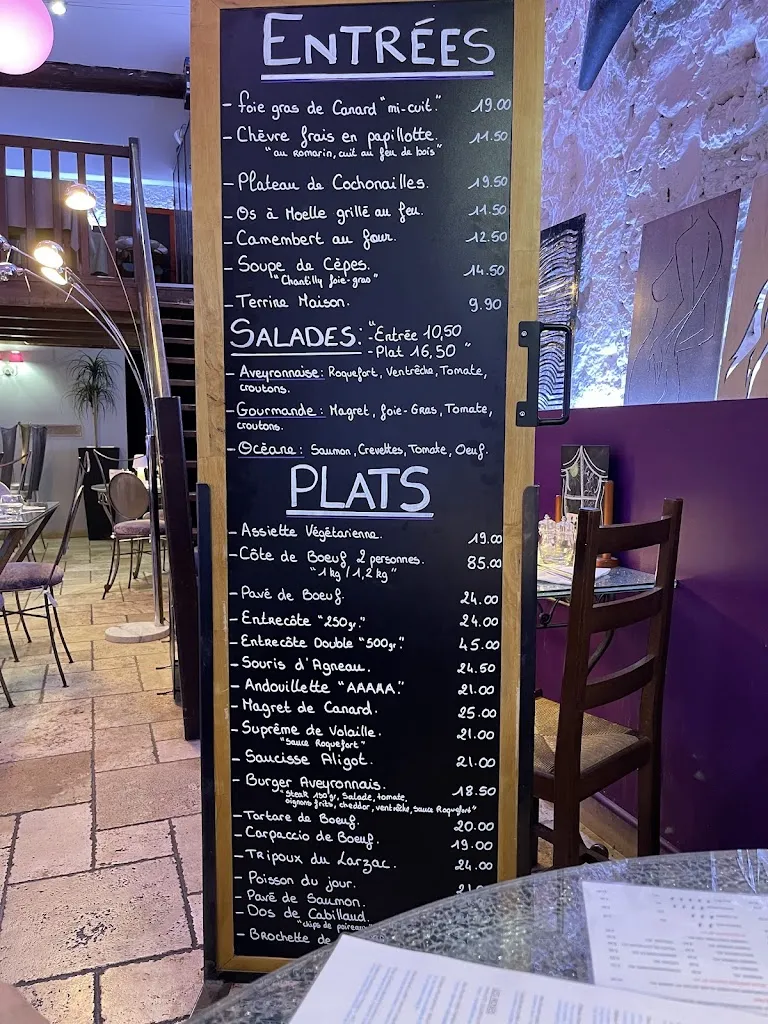 ENTRÉES
- foie gras de Canard "mi-cuit." 19.00
- Chèvre frais en papillotte. 11.50
"au Romarin, cuit au feu de bois"
- Plateau de Cochonailles. 19.50
- Os à Moelle grillé au feu. 11.50
- Camembert au four. 12.50
- Soupe de Cèpes. 14.50
"Chantilly foie-gras"
- Terrine Maison. 9.90
SALADES: "-Entrée 10,50
-Plat 16,50"
- Aveyronnaise: Roquefort, Ventrêche, Tomate,
croutons.
- Gourmande: Magret, foie-Gras, Tomate,
croutons.
- Océane: Saumon, Crevettes, Tomate, Oeuf.
PLATS
- Assiette Végétarienne. 19.00
- Côte de Boeuf 2 personnes. 85.00
"1 kg / 1,2 kg"
- Pavé de Boeuf. 24.00
- Entrecôte "250gr." 24.00
- Entrecôte Double "500gr." 45.00
- Souris d'Agneau. 24.50
- Andouillette "AAAAA." 21.00
- Magret de Canard. 25.00
- Suprême de Volaille. 21.00
"Sauce Roquefort"
- Saucisse Aligot. 21.00
- Burger Aveyronnais. 18.50
"Steak 150gr, Salade, tomate,
oignons frits, cheddor, ventrêche, sauce Roquefort"
- Tartare de Boeuf. 20.00
- Carpaccio de Boeuf. 19.00
- Tripoux du Larzac. 24.00
- Poisson du jour.
- Pavé de Saumon.
- Dos de Cabillaud.
"chips de poireaux"
- Brochette de